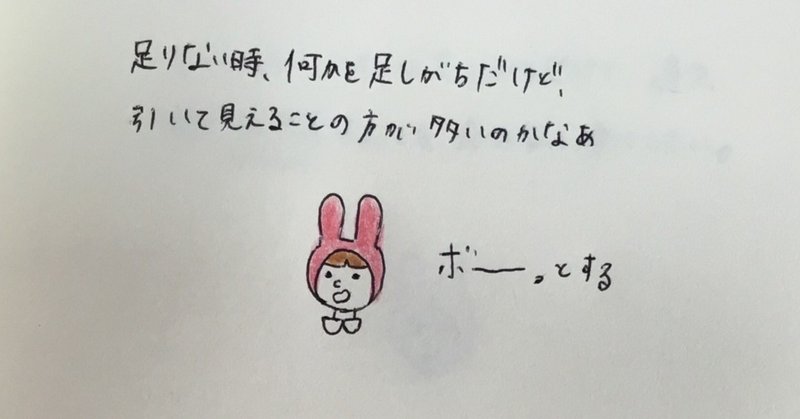 足りない時、何かを足しがちだけど、
引いて見えることの方が多いのかなぁ
ボーーっとする